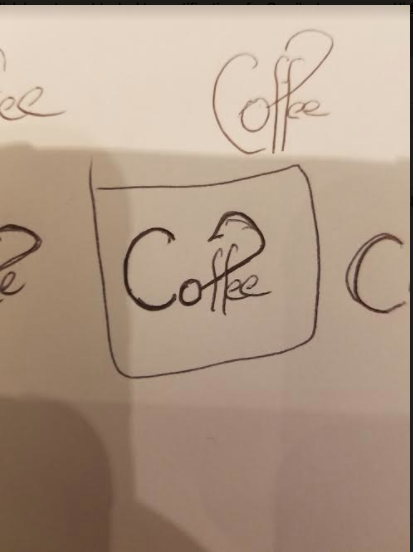 ee
Coffee
e
Coffee
C